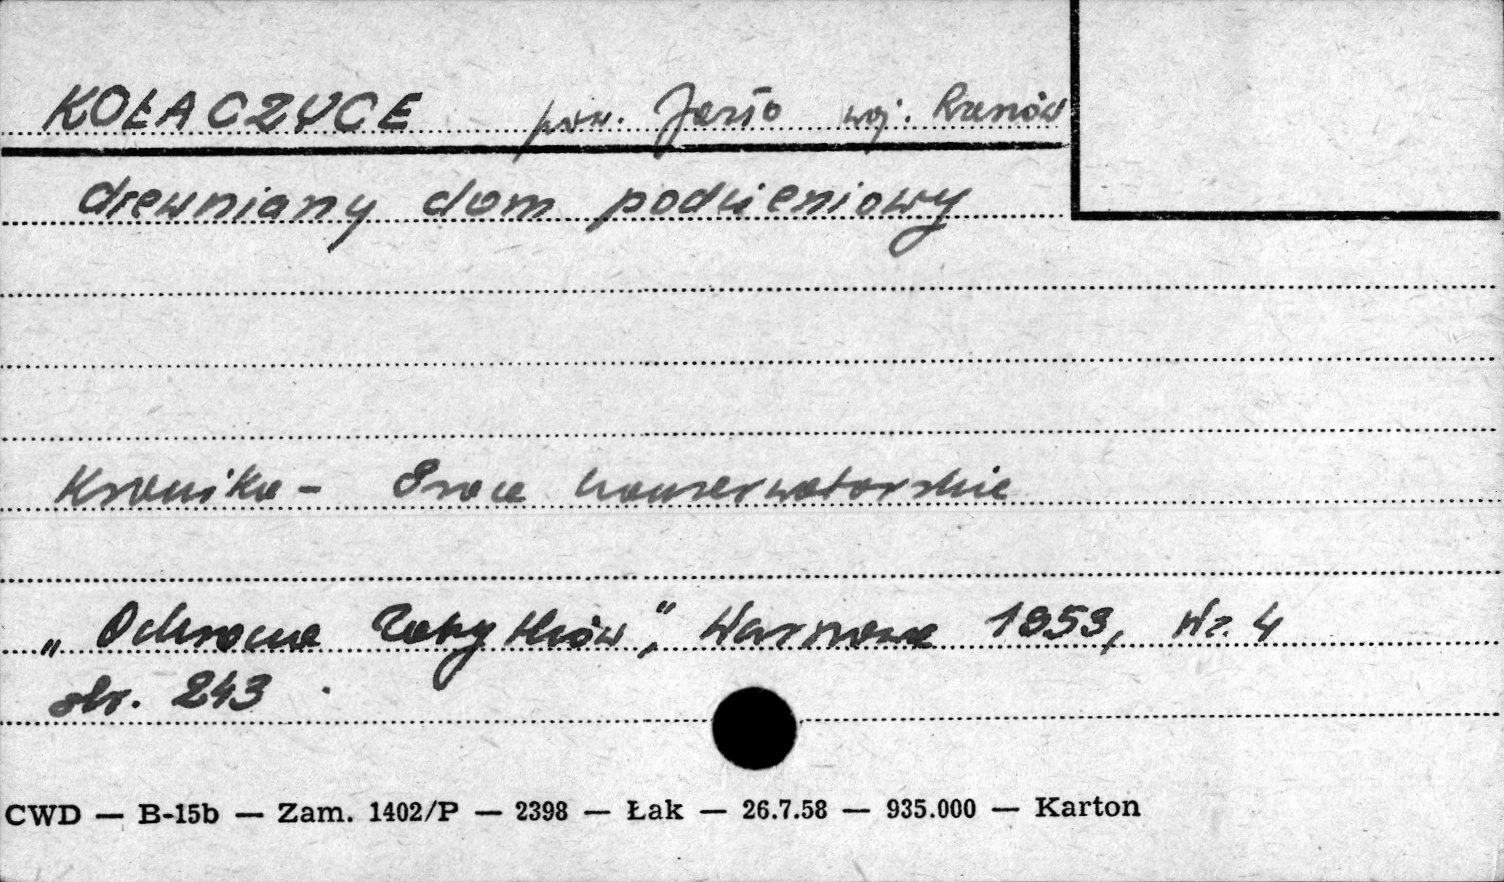 KOŁACZYCE pow. Jasło woj. Rzeszów
drewniany dom podcieniowy
Kronika - Prace konserwatorskie
„Ochrona Zabytków", Warszawa 1953, Nr. 4
str. 243
CWD — B-15b — Zam. 1402/P — 2398 — Łak — 26.7.58 — 935.000 — Karton